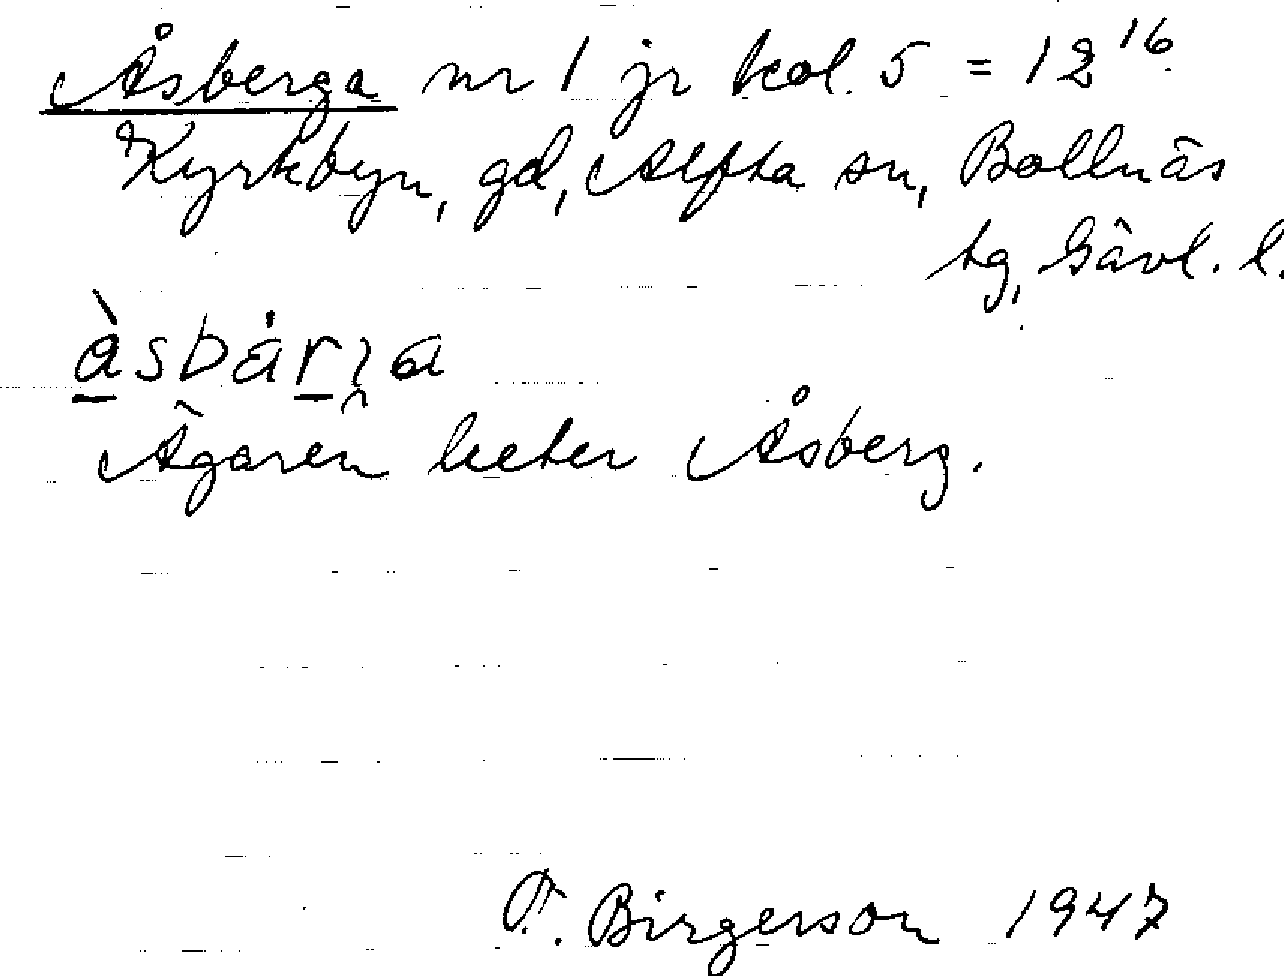 Åsberga nr 1 jr kol. 5 = 12¹⁶
Kyrkbyn, gd, Alfta sn, Bollnäs
tg, Gävl. l.
Ägaren heter Åsberg.
F. Birgerson 1947